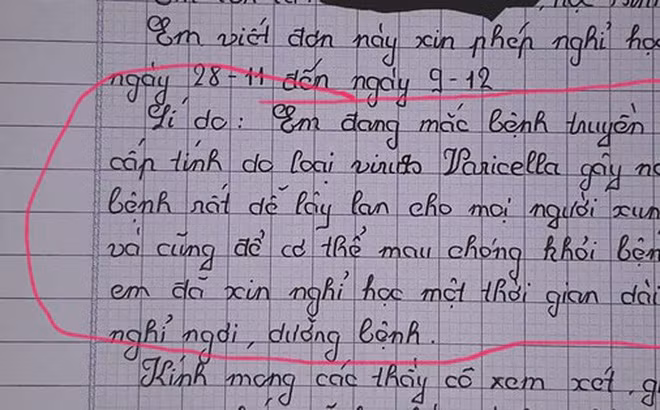 Em viết đơn này xin phép nghỉ học
ngày 28-11 đến ngày 9-12
Lí do: Em đang mắc bệnh truyền
cấp tính do loại virut Varicella gây
bệnh rất dễ lây lan cho mọi người xun
và cũng để có thể mau chóng khỏi bện
em đã xin nghỉ học một thời gian dài
nghỉ ngơi, dưỡng bệnh.
Kính mong các thầy cô xem xét, g